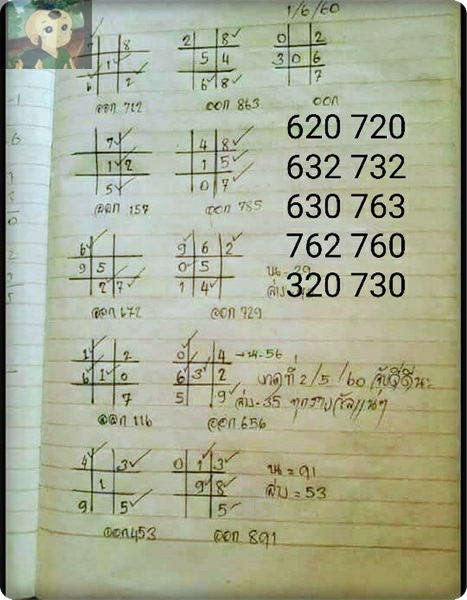 1/6/60
2 8✓ 0 2
1✓ 5 4 3 0 6
6✓ 2✓ 6✓8✓ 7
ออก 712 ออก 863 ออก
7✓ 4 8✓ 620 720
1✓2 1 5✓ 632 732
5✓ 0 7✓ 630 763
ออก 157 ออก 785 762 760
320 730
6✓ 9✓ 6 2✓
9 5 0✓ 5
2✓ 7✓ 1 4✓
ออก 672 ออก 729
1✓ 2 0✓ 4 → น-56
6✓ 1✓ 0 6✓ 3✓ 2 งวดที่ 2/5/60
7 5 9✓ ล่าง-35
ออก 116 ออก 656
4✓ 3✓ 0 1✓ 3✓ บน = 91
1 9✓ 8✓ ล่าง = 53
9 5✓ 5✓
ออก 453 ออก 891